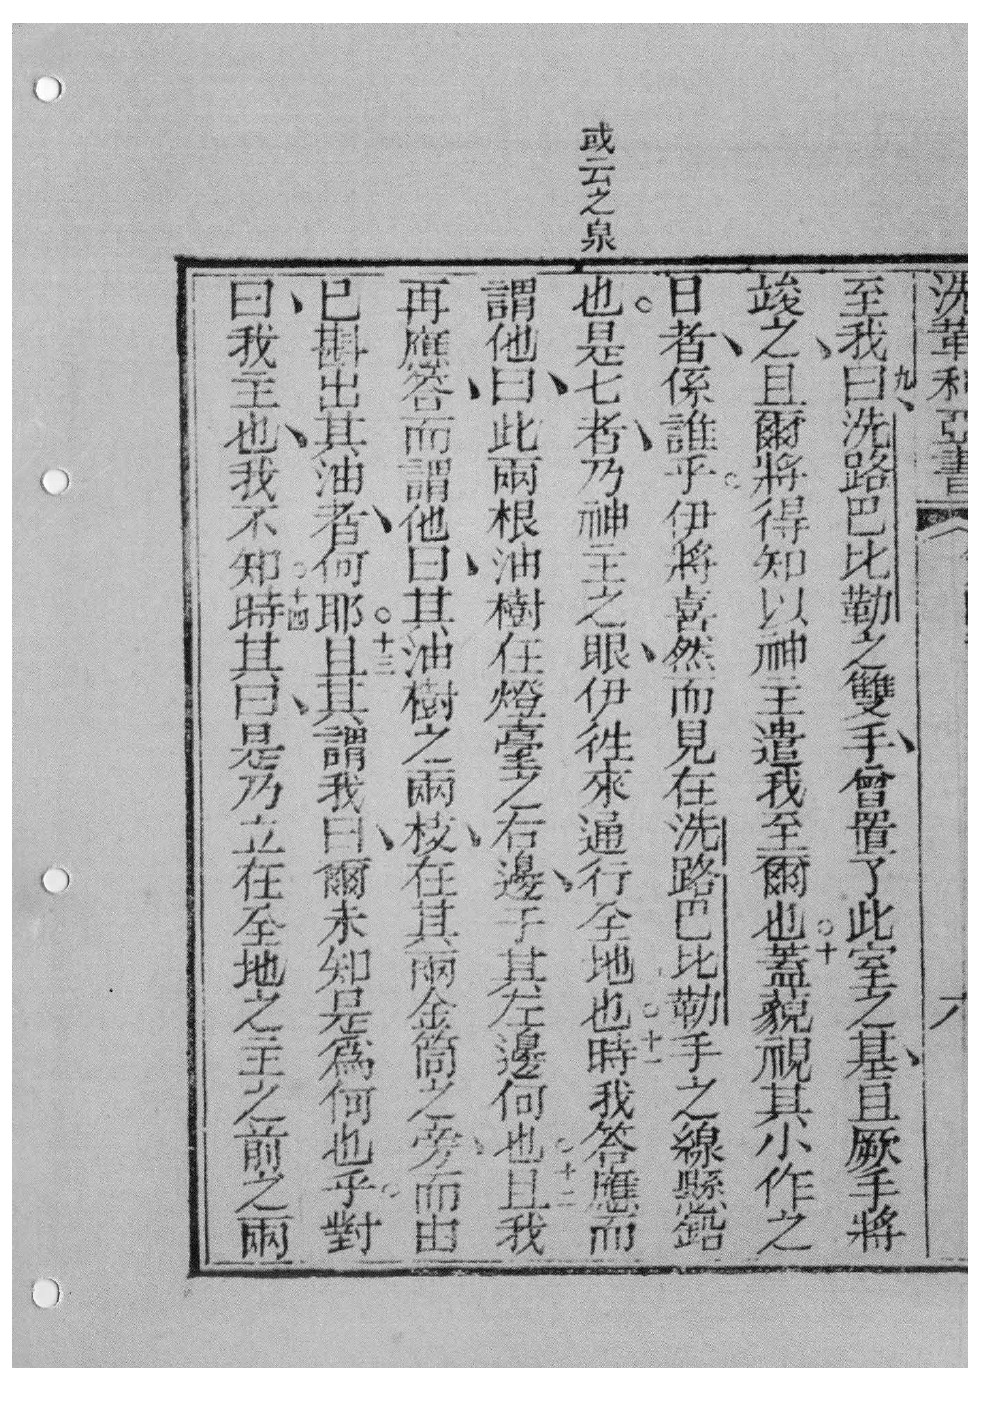 或云之泉
洗革利亞書
至我曰九洗路巴比勒之雙手曾置了此室之基且厥手將
竣之且爾將得知以神主遣我至爾也○十蓋藐視其小作之
日者係誰乎○伊將喜然而見在洗路巴比勒手之線懸鉛
也○是七者乃神主之眼伊徃來通行全地也○十一時我答應而
謂他曰此兩根油樹在燈臺之右邊于其左邊何也○十二且我
再應答而謂他曰其油樹之兩枝在其兩金筒之旁而由
已斟出其油者何耶○十三且其謂我曰爾未知是爲何也乎○對
曰我主也我不知○十四時其曰是乃立在全地之主之前之兩